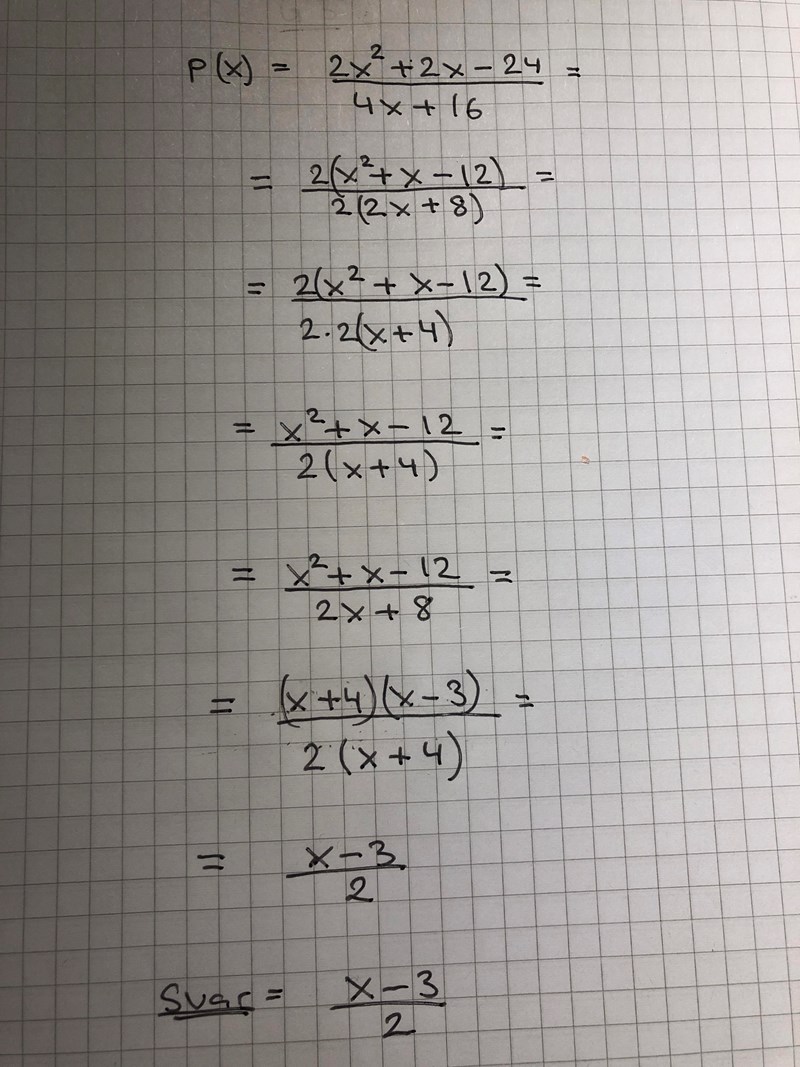 P(x) = (2x² + 2x - 24)/(4x + 16) =
= 2(x² + x - 12)/2(2x + 8) =
= 2(x² + x - 12)/2·2(x + 4) =
= (x² + x - 12)/2(x + 4) =
= (x² + x - 12)/(2x + 8) =
= (x + 4)(x - 3)/2(x + 4) =
= (x - 3)/2
Svar = (x - 3)/2